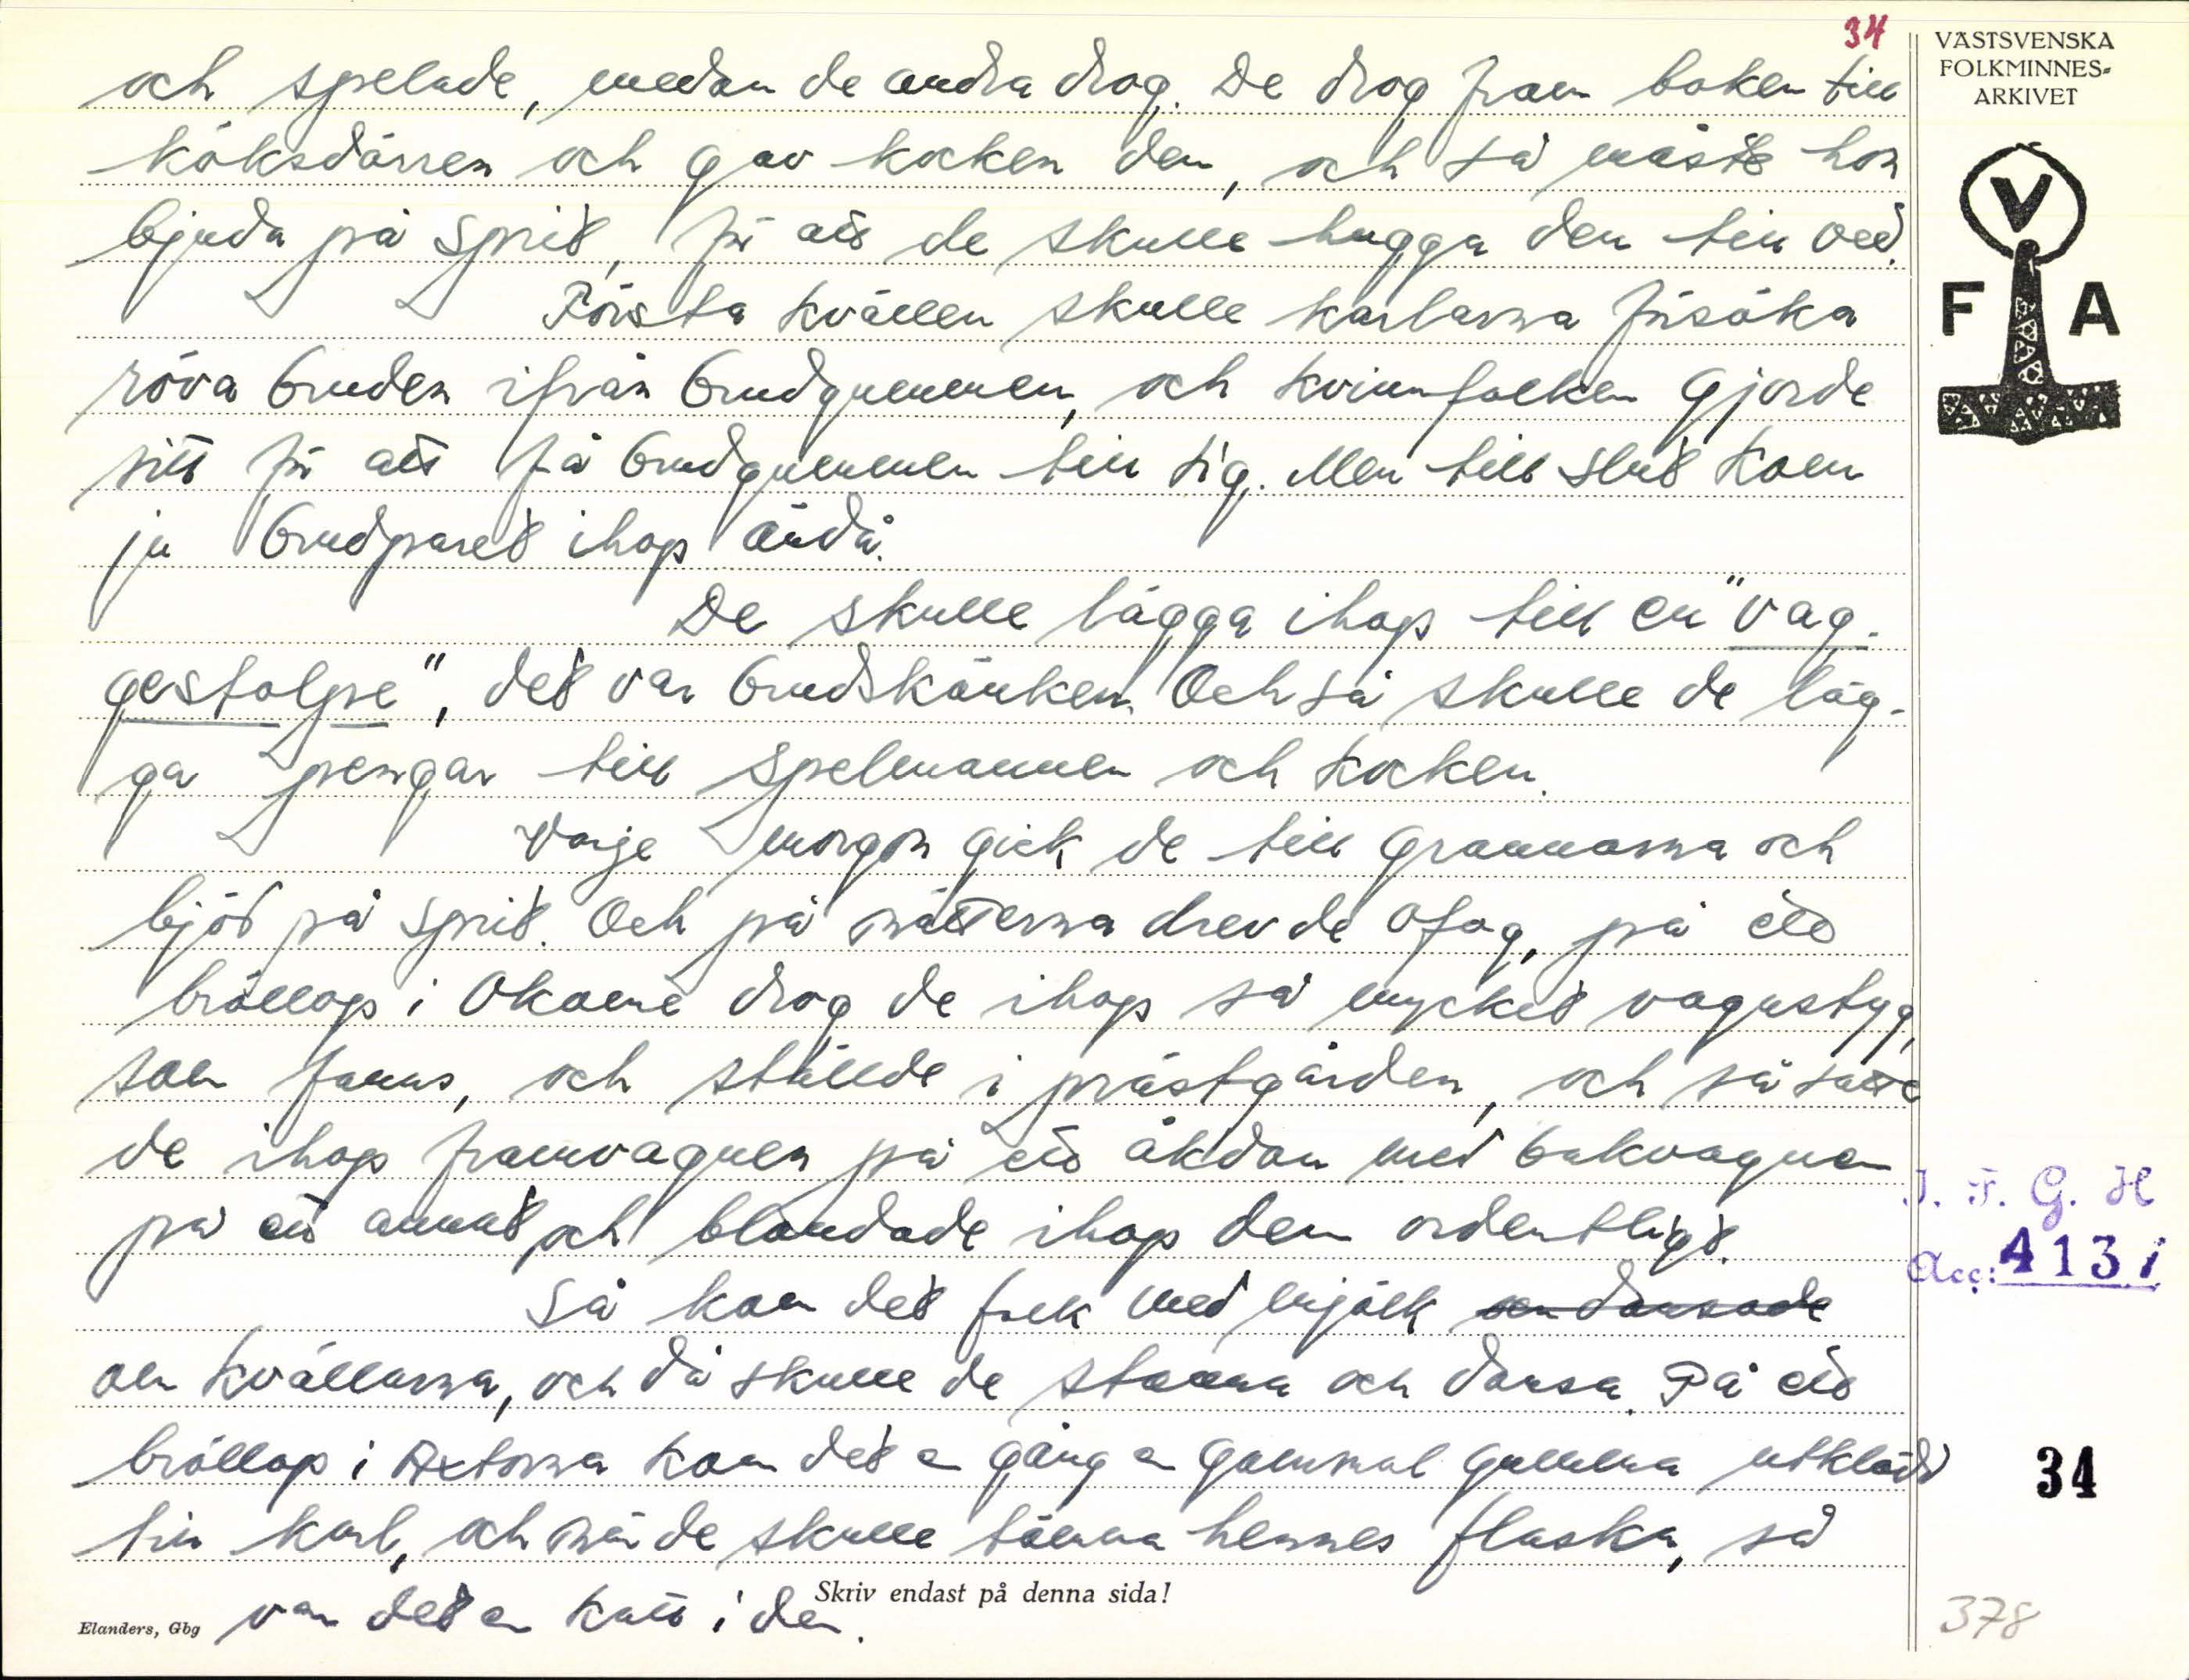 34
och spelade, medan de andra drog. De drog fram boken till
köksdörren och gav kocken den, och så måste hon
bjuda på sprit, för att de skulle hugga den till ved.
Första kvällen skulle karlarna försöka
röva bruden ifrån brudgummen, och kvinnfolken gjorde
sitt för att få brudgummen till sig. Men till slut kom
ju brudparet ihop ändå.
De skulle lägga ihop till en "vag-
gestolpe", det var brudskänken. Och så skulle de läg-
ga pengar till spelmannen och kocken.
Varje morgon gick de till grannarna och
bjöd på sprit. Och på nätterna drev de ofog, på ett
bröllop i Okome drog de ihop så mycket vagnstyg,
som fanns, och ställde i prästgården, och så satte
de ihop framvagnen på ett åkdon med bakvagnen
på ett annat och blandade ihop dem ordentligt.
Så kom det folk med mjölk
om kvällarna, och då skulle de stanna och dansa. På ett
bröllop i Axtorna kom det en gång en gammal gumma utklädd
till karl, och när de skulle tömma hennes flaska, så
var det en katt i den.
Skriv endast på denna sida!
Elanders, Gbg
VÄSTSVENSKA
FOLKMINNES-
ARKIVET
V
F A
I. F. G. H
Acc: 4131
34
378